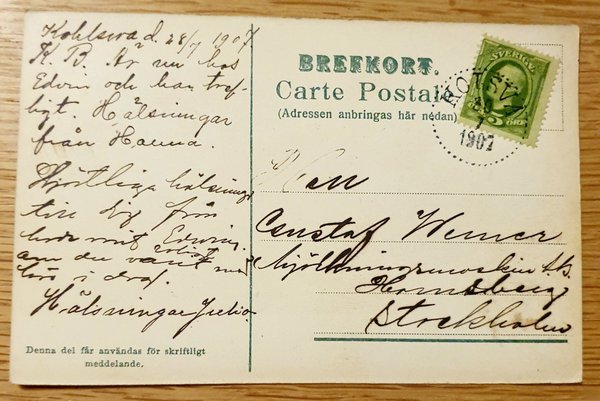 Kohlswa d. 28/7 1907
K. B. Är nu hos
Edvin och har tref-
ligt. Hälsningar
från Hanna.
Hjärtliga hälsning
till dig från
Edwin.
om du varit med
hos i dag.
Hälsningar
Denna del får användas för skriftligt
meddelande.
BREFKORT.
Carte Postale
(Adressen anbringas här nedan)
SVERIGE
5 ÖRE
KOTSVA
28
7
1907
Herr
Gustaf Werner
Mjölkningsmaskin A.B.
Hornsberg
Stockholm